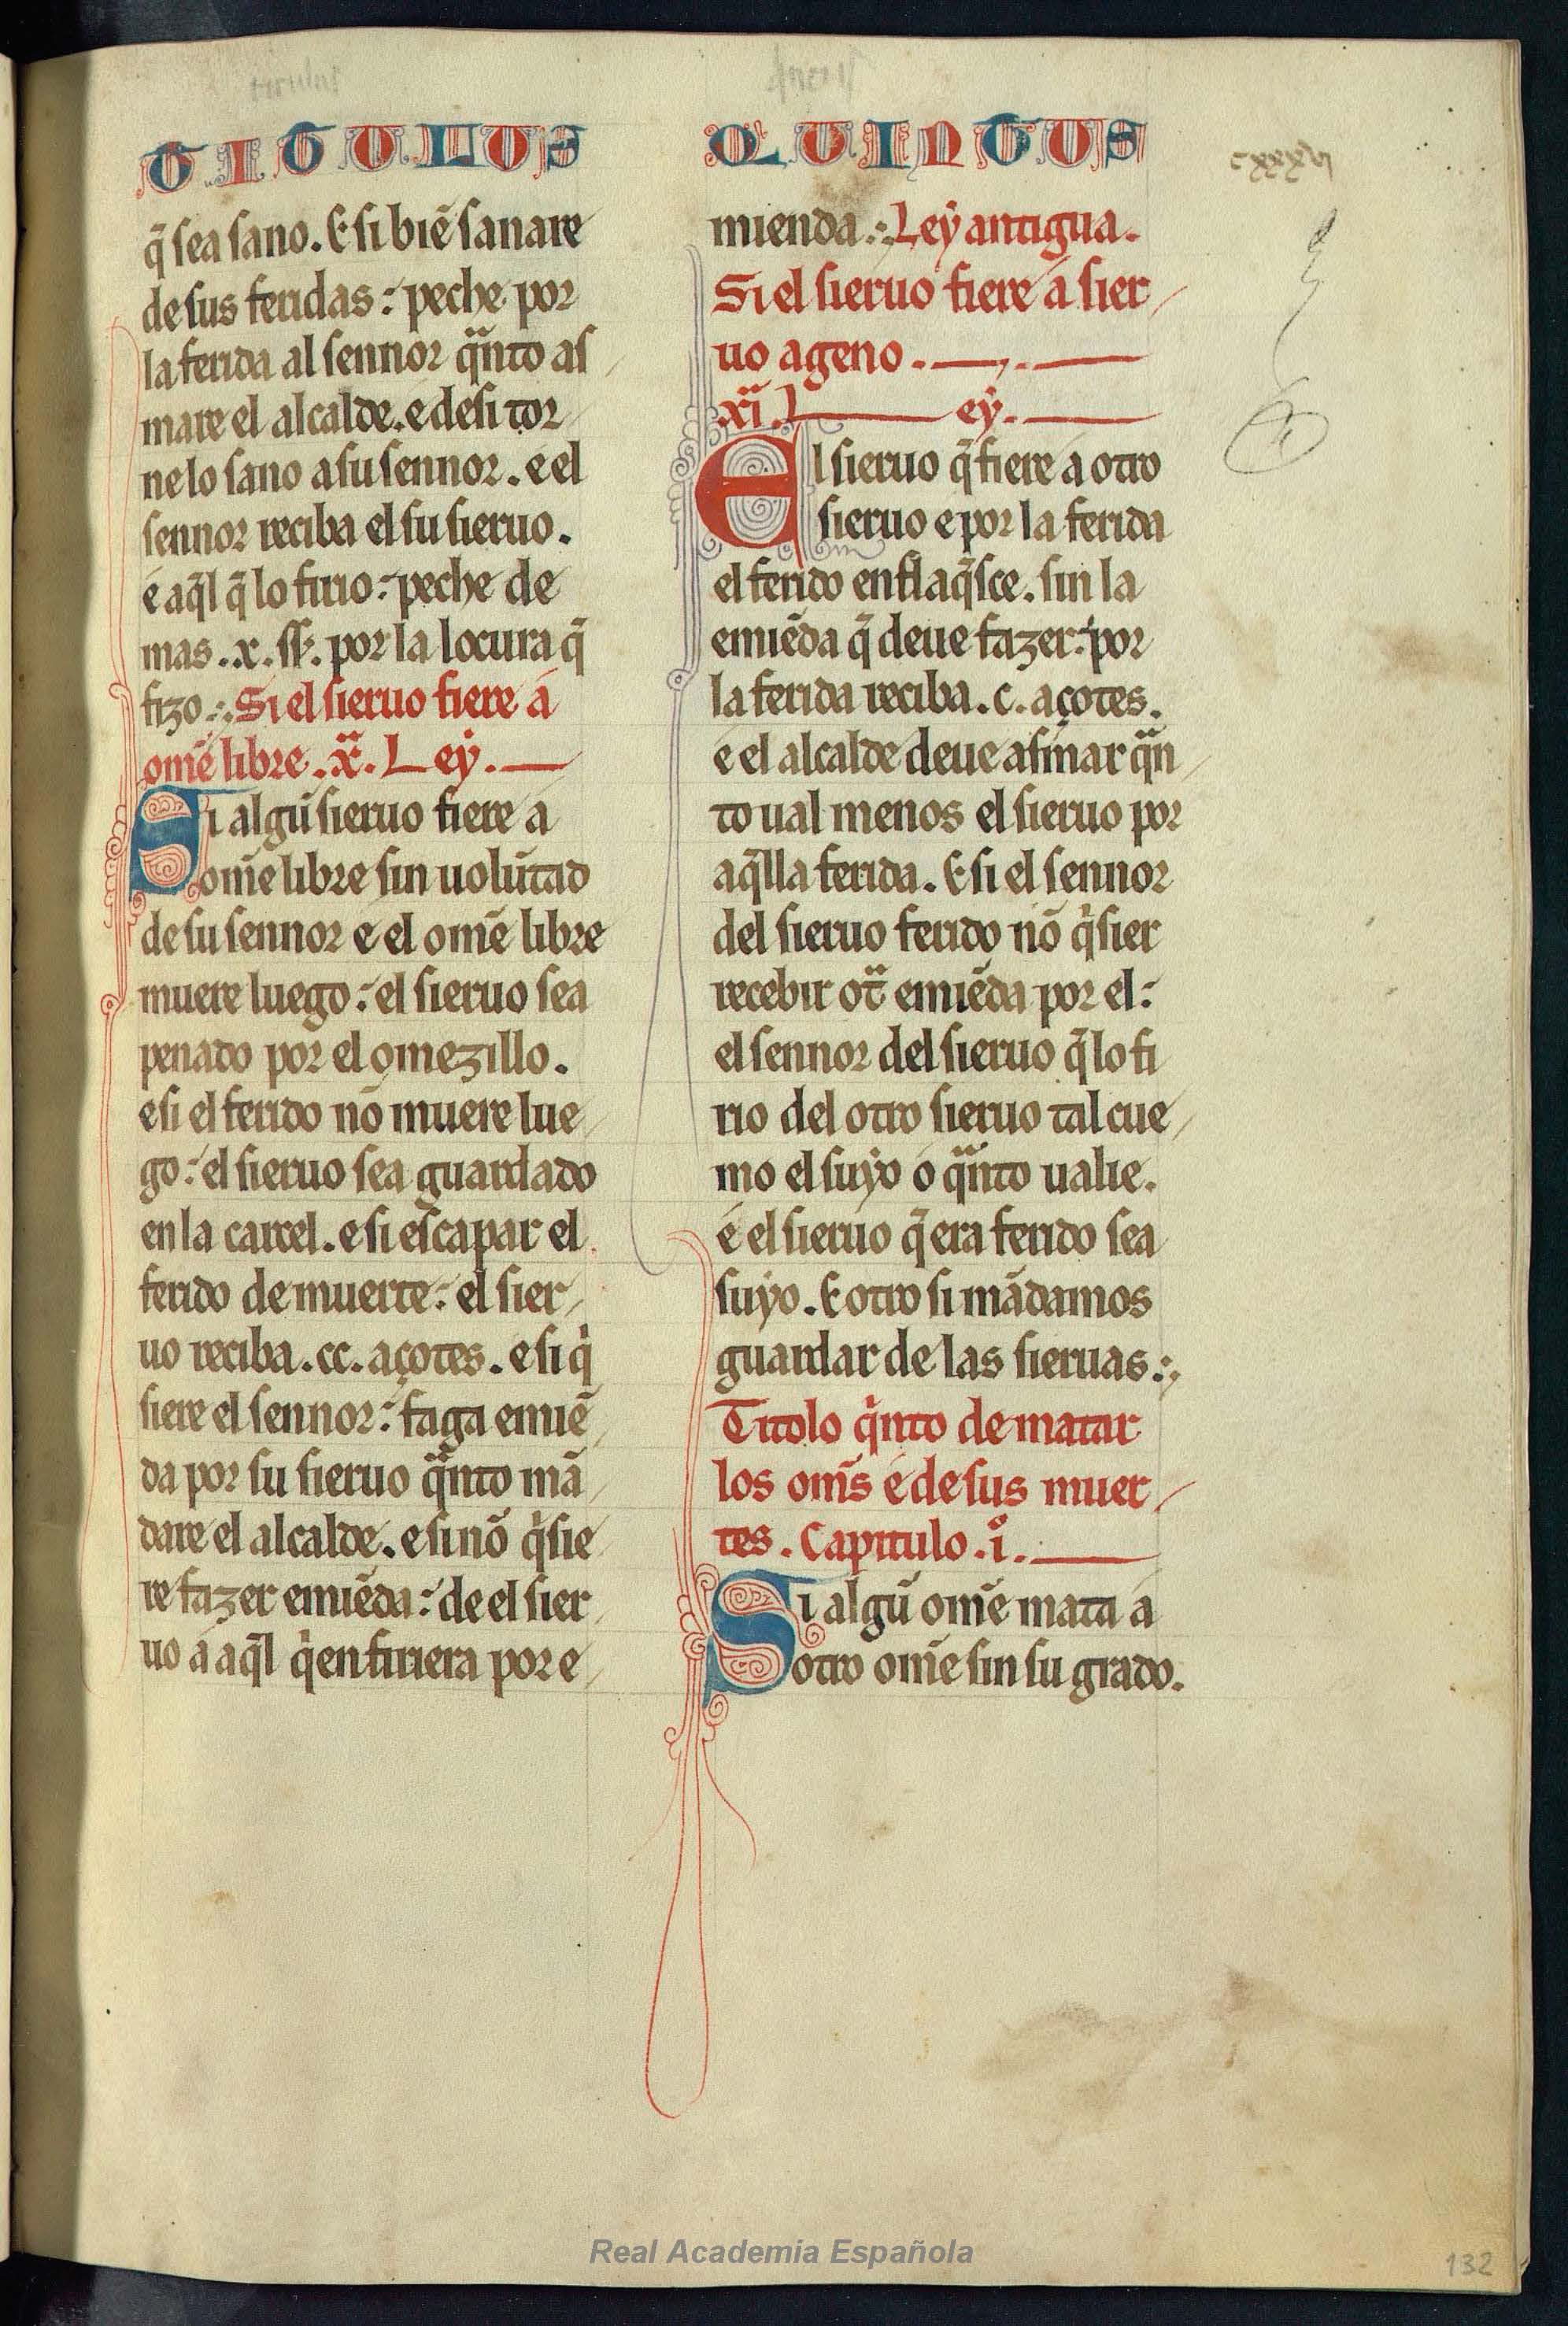 TITULUS QUINTUS
cxxxvi
q̃ sea sano. E si biẽ sanare
de sus feridas: peche por
la ferida al sennor qᵃnto as
mare el alcalde. e desi tor
ne lo sano a su sennor. e el
sennor reciba el su sieruo.
e aq̃l q̃ lo firio: peche de
mas .x. ss. por la locura q̃
fizo. Si el sieruo fiere a
om̃e libre. x.ᵃ Ley.
Si algũ sieruo fiere a
om̃e libre sin uolũtad
de su sennor e el om̃e libre
muere luego: el sieruo sea
penado por el omezillo.
e si el ferido nõ muere lue
go: el sieruo sea guardado
en la carcel. e si escapar el
ferido de muerte: el sier
uo reciba .cc. açotes. e si qⁱ
siere el sennor: faga emiẽ
da por su sieruo qᵃnto mã
dare el alcalde. e si nõ qⁱsie
re fazer emiẽda: de el sier
uo a aq̃l qⁱen firiera por e
mienda. Ley antigua.
Si el sieruo fiere a sier
uo ageno.
xi.ᵃ Ley.
El sieruo q̃ fiere a otro
sieruo e por la ferida
el ferido enflaq̃sce. sin la
emiẽda q̃ deue fazer: por
la ferida reciba .c. açotes.
e el alcalde deue asmar qᵃn
to ual menos el sieruo por
aq̃lla ferida. E si el sennor
del sieruo ferido nõ qⁱsier
recebir otᵃ emiẽda por el:
el sennor del sieruo q̃ lo fi
rio del otro sieruo tal cue
mo el suyo o qᵃnto ualie.
e el sieruo q̃ era ferido sea
suyo. E otro si mãdamos
guardar de las sieruas.
Titolo qⁱnto de matar
los om̃s e de sus muer
tes. Capitulo .i.º
Si algũ om̃e mata a
otro om̃e sin su grado.
Real Academia Española
132